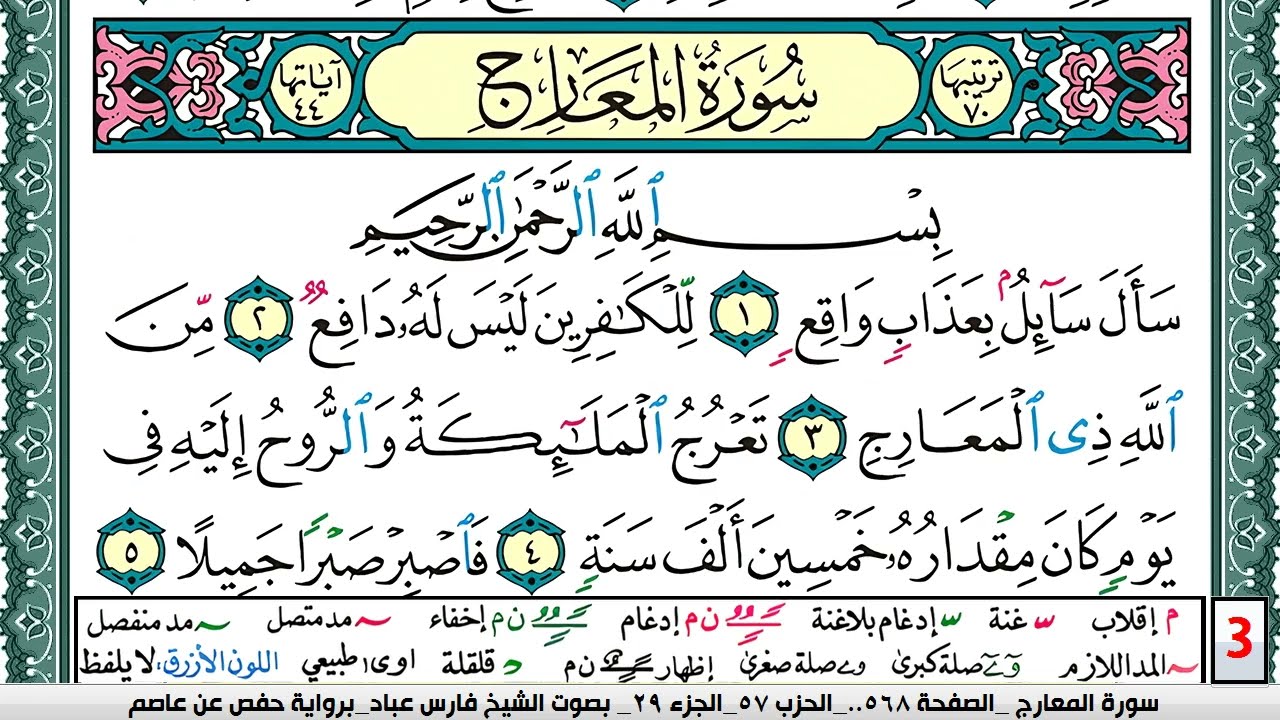 ترتيبها ٧٠ سُورَةُ المَعَارِج آياتها ٤٤
بِسْمِ ٱللَّهِ ٱلرَّحْمَٰنِ ٱلرَّحِيمِ
سَأَلَ سَآئِلُۢ بِعَذَابٖ وَاقِعٖ ١ لِّلۡكَٰفِرِينَ لَيۡسَ لَهُۥ دَافِعٞ ٢ مِّنَ
ٱللَّهِ ذِي ٱلۡمَعَارِجِ ٣ تَعۡرُجُ ٱلۡمَلَٰٓئِكَةُ وَٱلرُّوحُ إِلَيۡهِ فِي
يَوۡمٖ كَانَ مِقۡدَارُهُۥ خَمۡسِينَ أَلۡفَ سَنَةٖ ٤ فَٱصۡبِرۡ صَبۡرٗا جَمِيلًا ٥
م إقلاب س غنة س إدغام بلاغنة ن م إدغام ن م إخفاء مد متصل مد منفصل
المد اللازم صلة كبرى صلة صغرى ن م إظهار د قلقلة اوى طبيعي اللون الأزرق: لا يلفظ
3
سورة المعارج _الصفحة ٥٦٨.._الحزب ٥٧_الجزء ٢٩_ بصوت الشيخ فارس عباد_برواية حفص عن عاصم